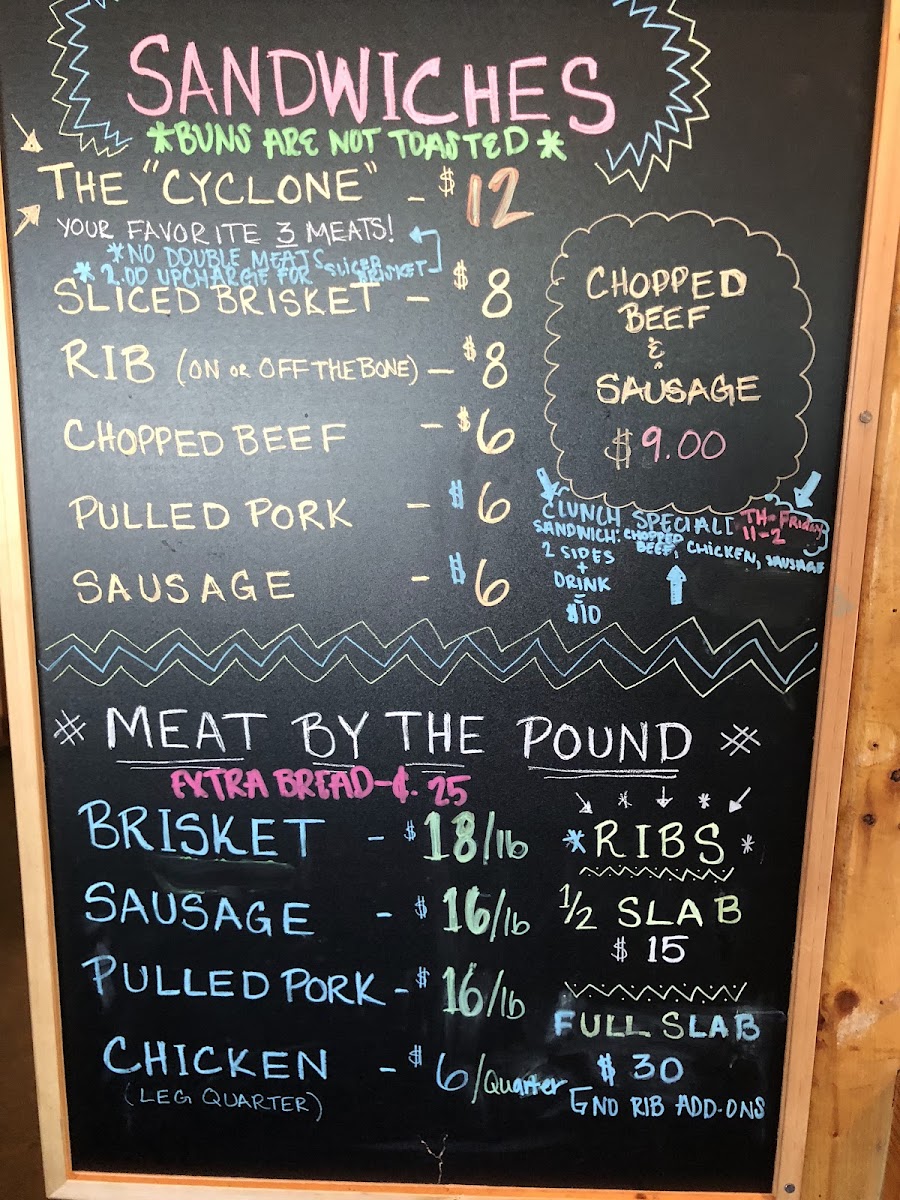 SANDWICHES
*BUNS ARE NOT TOASTED*
THE "CYCLONE" - $12
YOUR FAVORITE 3 MEATS!
*NO DOUBLE MEATS
* 2.00 UPCHARGE FOR SLICED BRISKET
SLICED BRISKET - $8
RIB (ON OR OFF THE BONE) - $8
CHOPPED BEEF - $6
PULLED PORK - $6
SAUSAGE - $6
CHOPPED
BEEF
&
SAUSAGE
$9.00
LUNCH SPECIAL TH-Friday
11-2
SANDWICH: CHOPPED BEEF, CHICKEN, SAUSAGE
2 SIDES
+
DRINK
=
$10
MEAT BY THE POUND
EXTRA BREAD-¢.25
BRISKET - $18/lb
SAUSAGE - $16/lb
PULLED PORK - $16/lb
CHICKEN - $6/Quarter
(LEG QUARTER)
*RIBS*
1/2 SLAB
$15
FULL SLAB
$30
NO RIB ADD-ONS